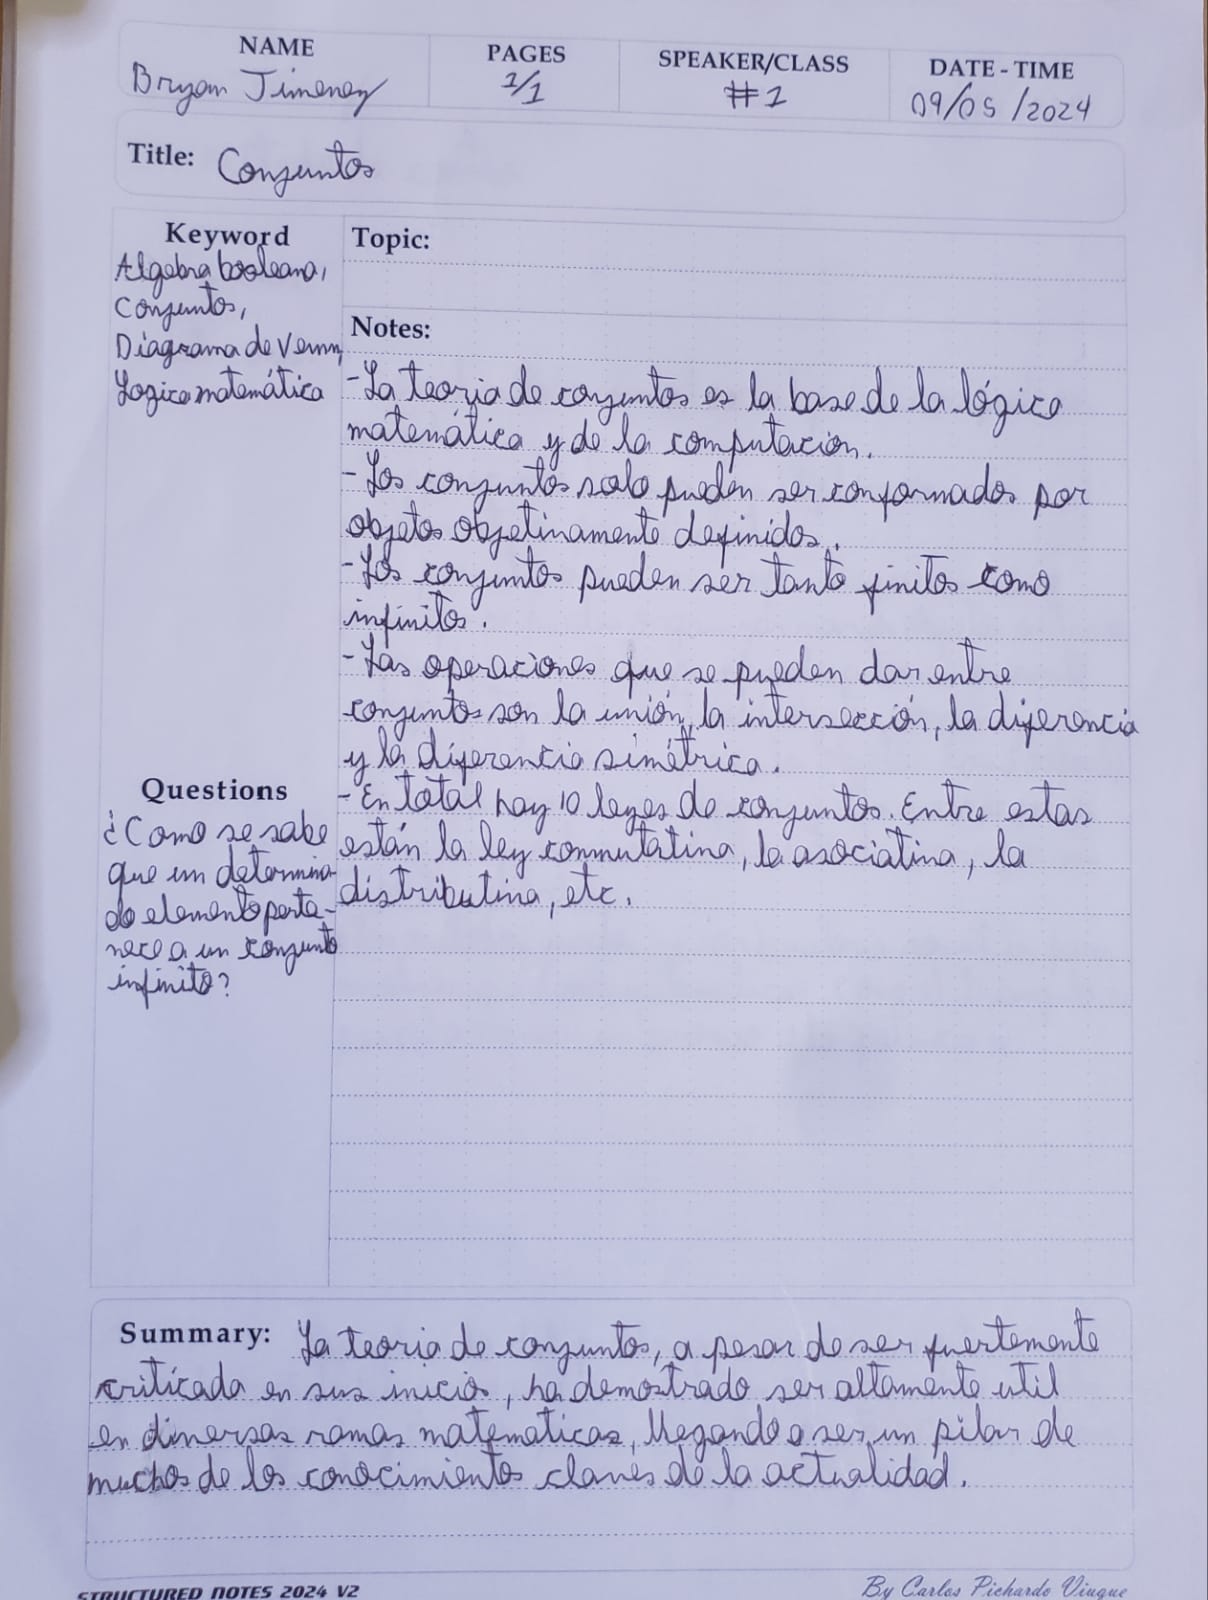 NAME
Bryan Jimenez
PAGES
1/1
SPEAKER/CLASS
#1
DATE - TIME
09/05/2024
Title: Conjuntos
Keyword
Algebra booleana,
Conjuntos,
Diagrama de Venn,
Logica matemática
Topic:
Notes:
-La teoria de conjuntos es la base de la lógica
matemática y de la computación.
-Los conjuntos solo pueden ser conformados por
objetos objetivamente definidos.
-Los conjuntos pueden ser tanto finitos como
infinitos.
-Las operaciones que se pueden dar entre
conjuntos son la unión, la intersección, la diferencia
y la diferencia simétrica.
-En total hay 10 leyes de conjuntos. Entre estas
están la ley conmutativa, la asociativa, la
distributiva, etc.
Questions
¿Como se sabe
que un determina-
do elemento perte-
nece a un conjunto
infinito?
Summary: La teoria de conjuntos, a pesar de ser fuertemente
criticada en sus inicios, ha demostrado ser altamente util
en diversas ramas matematicas, llegando a ser un pilar de
muchos de los conocimientos claves de la actualidad.
STRUCTURED NOTES 2024 V2
By Carlos Pichardo Viuque